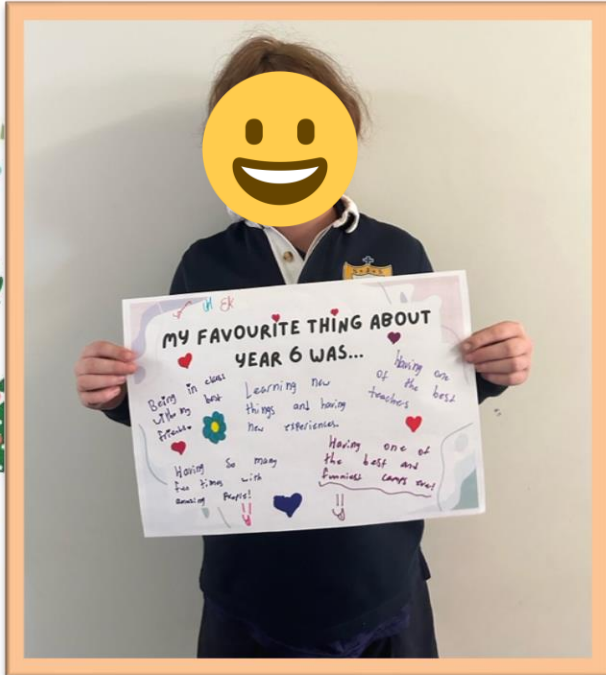 EK
MY FAVOURITE THING ABOUT
YEAR 6 WAS...
Being in class
with my best
friends.
Learning new
things and having
new experiences.
Having one
of the best
teachers
Having so many
fun times with
amazing people!
Having one of
the best and
funniest camps ever!